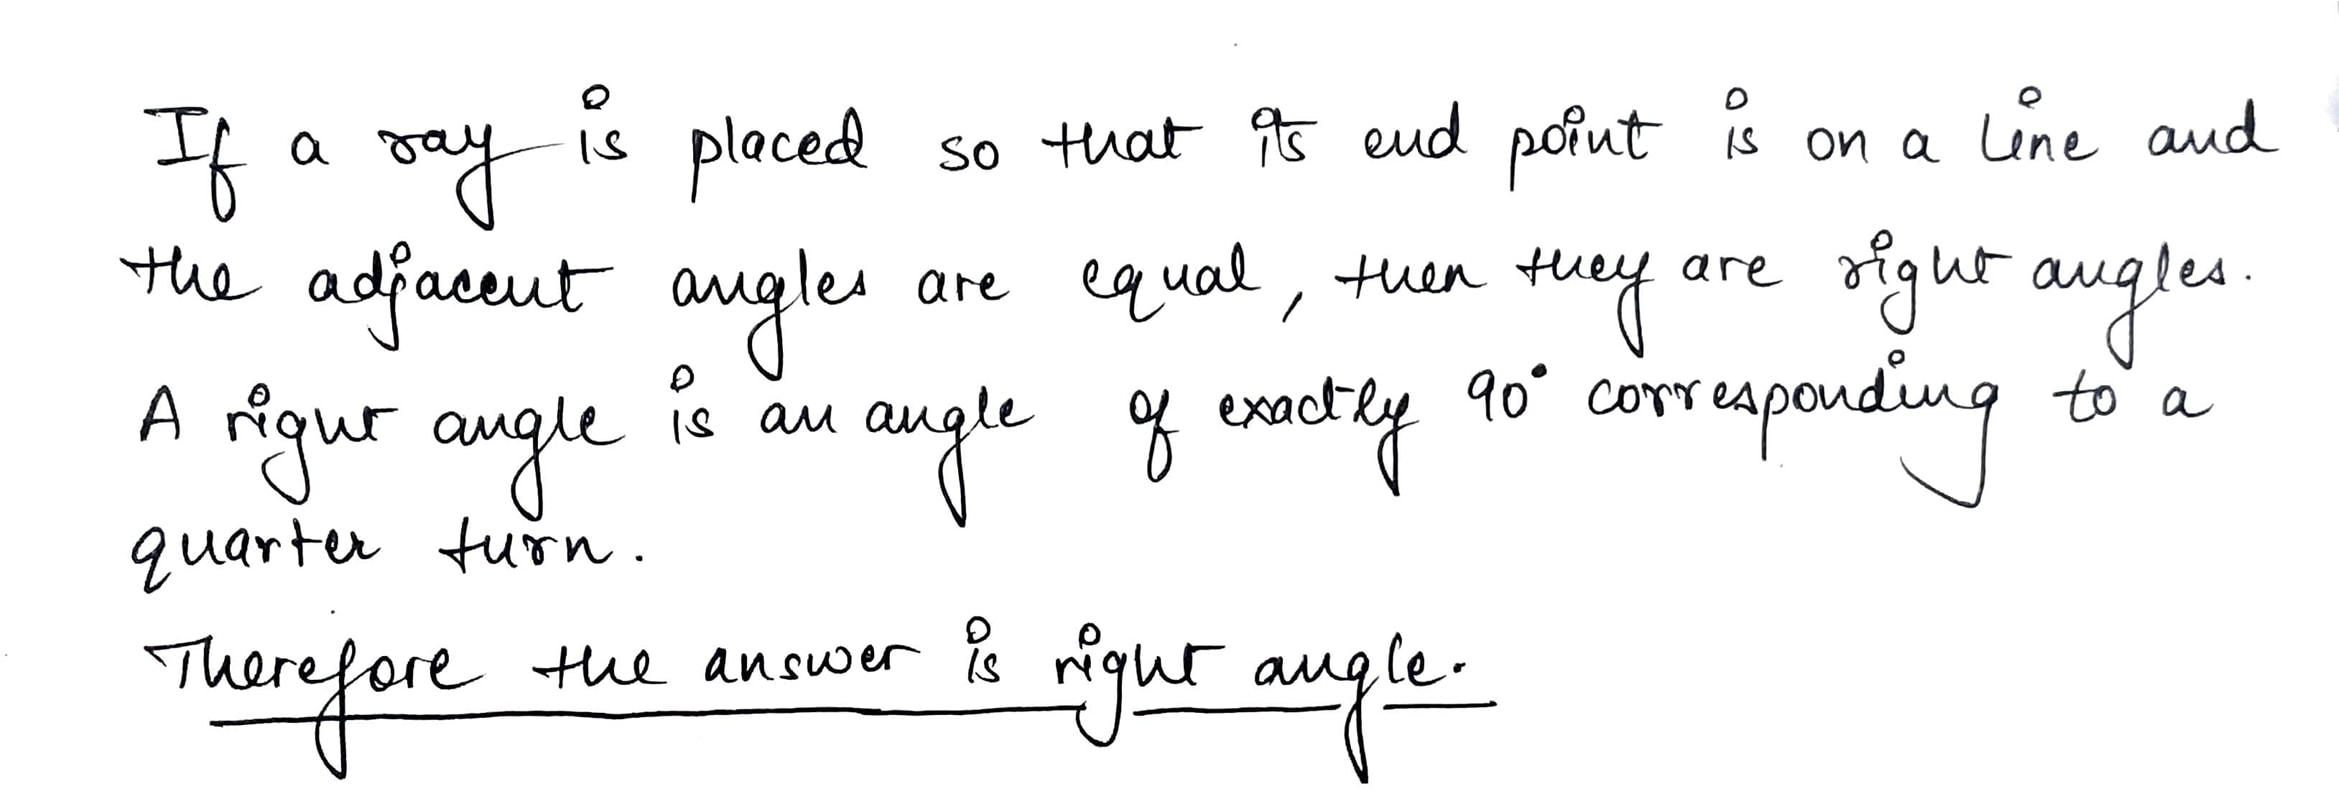 If a ray is placed so that its end point is on a line and
the adjacent angles are equal, then they are right angles.
A right angle is an angle of exactly 90° corresponding to a
quarter turn.
Therefore the answer is right angle.